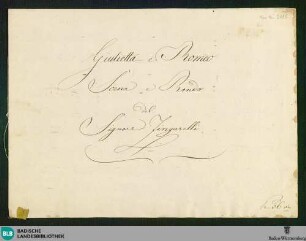 Giulietta e Romeo
Scena e Rondo
del
Signore Zingarelli
BLB
BADISCHE
LANDESBIBLIOTHEK
Baden-Württemberg